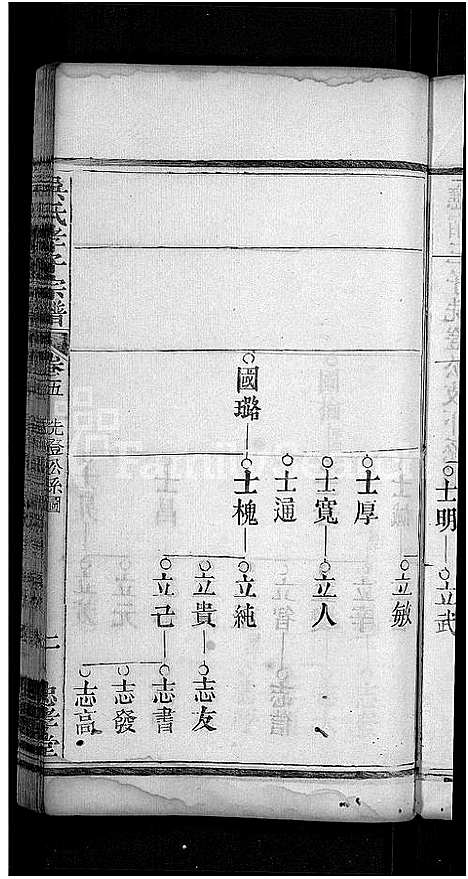 士明
立武
立敏
士厚
士寬
立人
士通
國璐
士槐
立純
立貴
志友
立己
志書
志發
志高
吳氏孝子宗譜
卷五
先登公系圖
二
忠孝堂